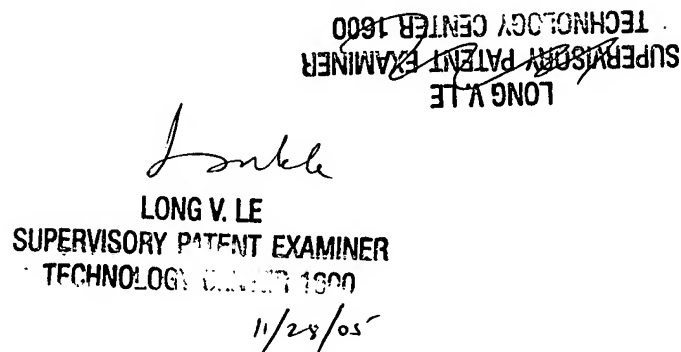 LONG V. LE
SUPERVISORY PATENT EXAMINER
TECHNOLOGY CENTER 1600
LONG V. LE
SUPERVISORY PATENT EXAMINER
TECHNOLOGY 1600
11/28/05